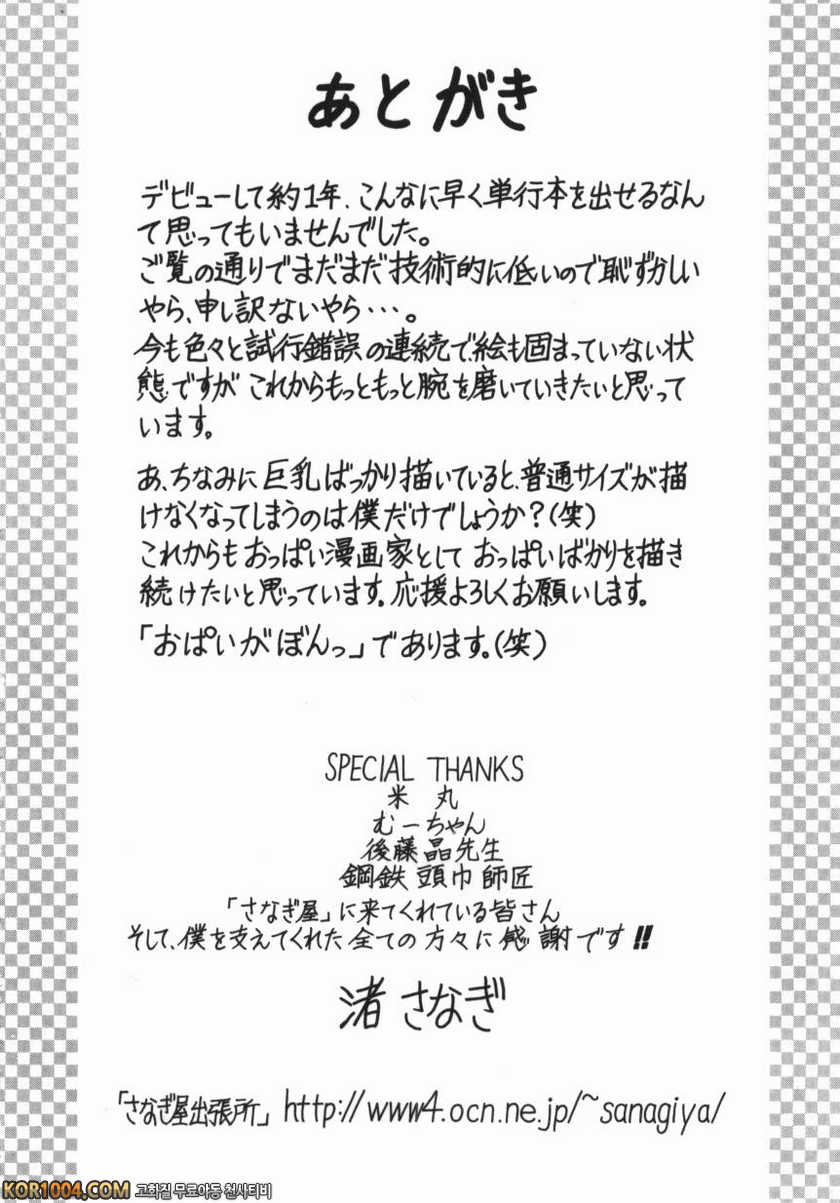 あとがき
デビューして約1年、こんなに早く単行本を出せるなん
て思ってもいませんでした。
ご覧の通りでまだまだ技術的に低いので恥ずかしい
やら、申し訳ないやら・・・。
今も色々と試行錯誤の連続で絵も固まっていない状
態ですが これからもっともっと腕を磨いていきたいと思って
います。
あ、ちなみに巨乳ばっかり描いていると、普通サイズが描
けなくなってしまうのは僕だけでしょうか?(笑)
これからもおっぱい漫画家として おっぱいばかりを描き
続けたいと思っています。応援よろしくお願いします。
「おぱいがぼんっ」であります。(笑)
SPECIAL THANKS
米 丸
むーちゃん
後藤晶先生
鋼鉄 頭巾 師匠
「さなぎ屋」に来てくれている皆さん
そして、僕を支えてくれた全ての方々に感謝です!!
渚 さなぎ
「さなぎ屋出張所」 http://www4.ocn.ne.jp/~sanagiya/
KOR1004.COM 고화질 무료야동 천사티비